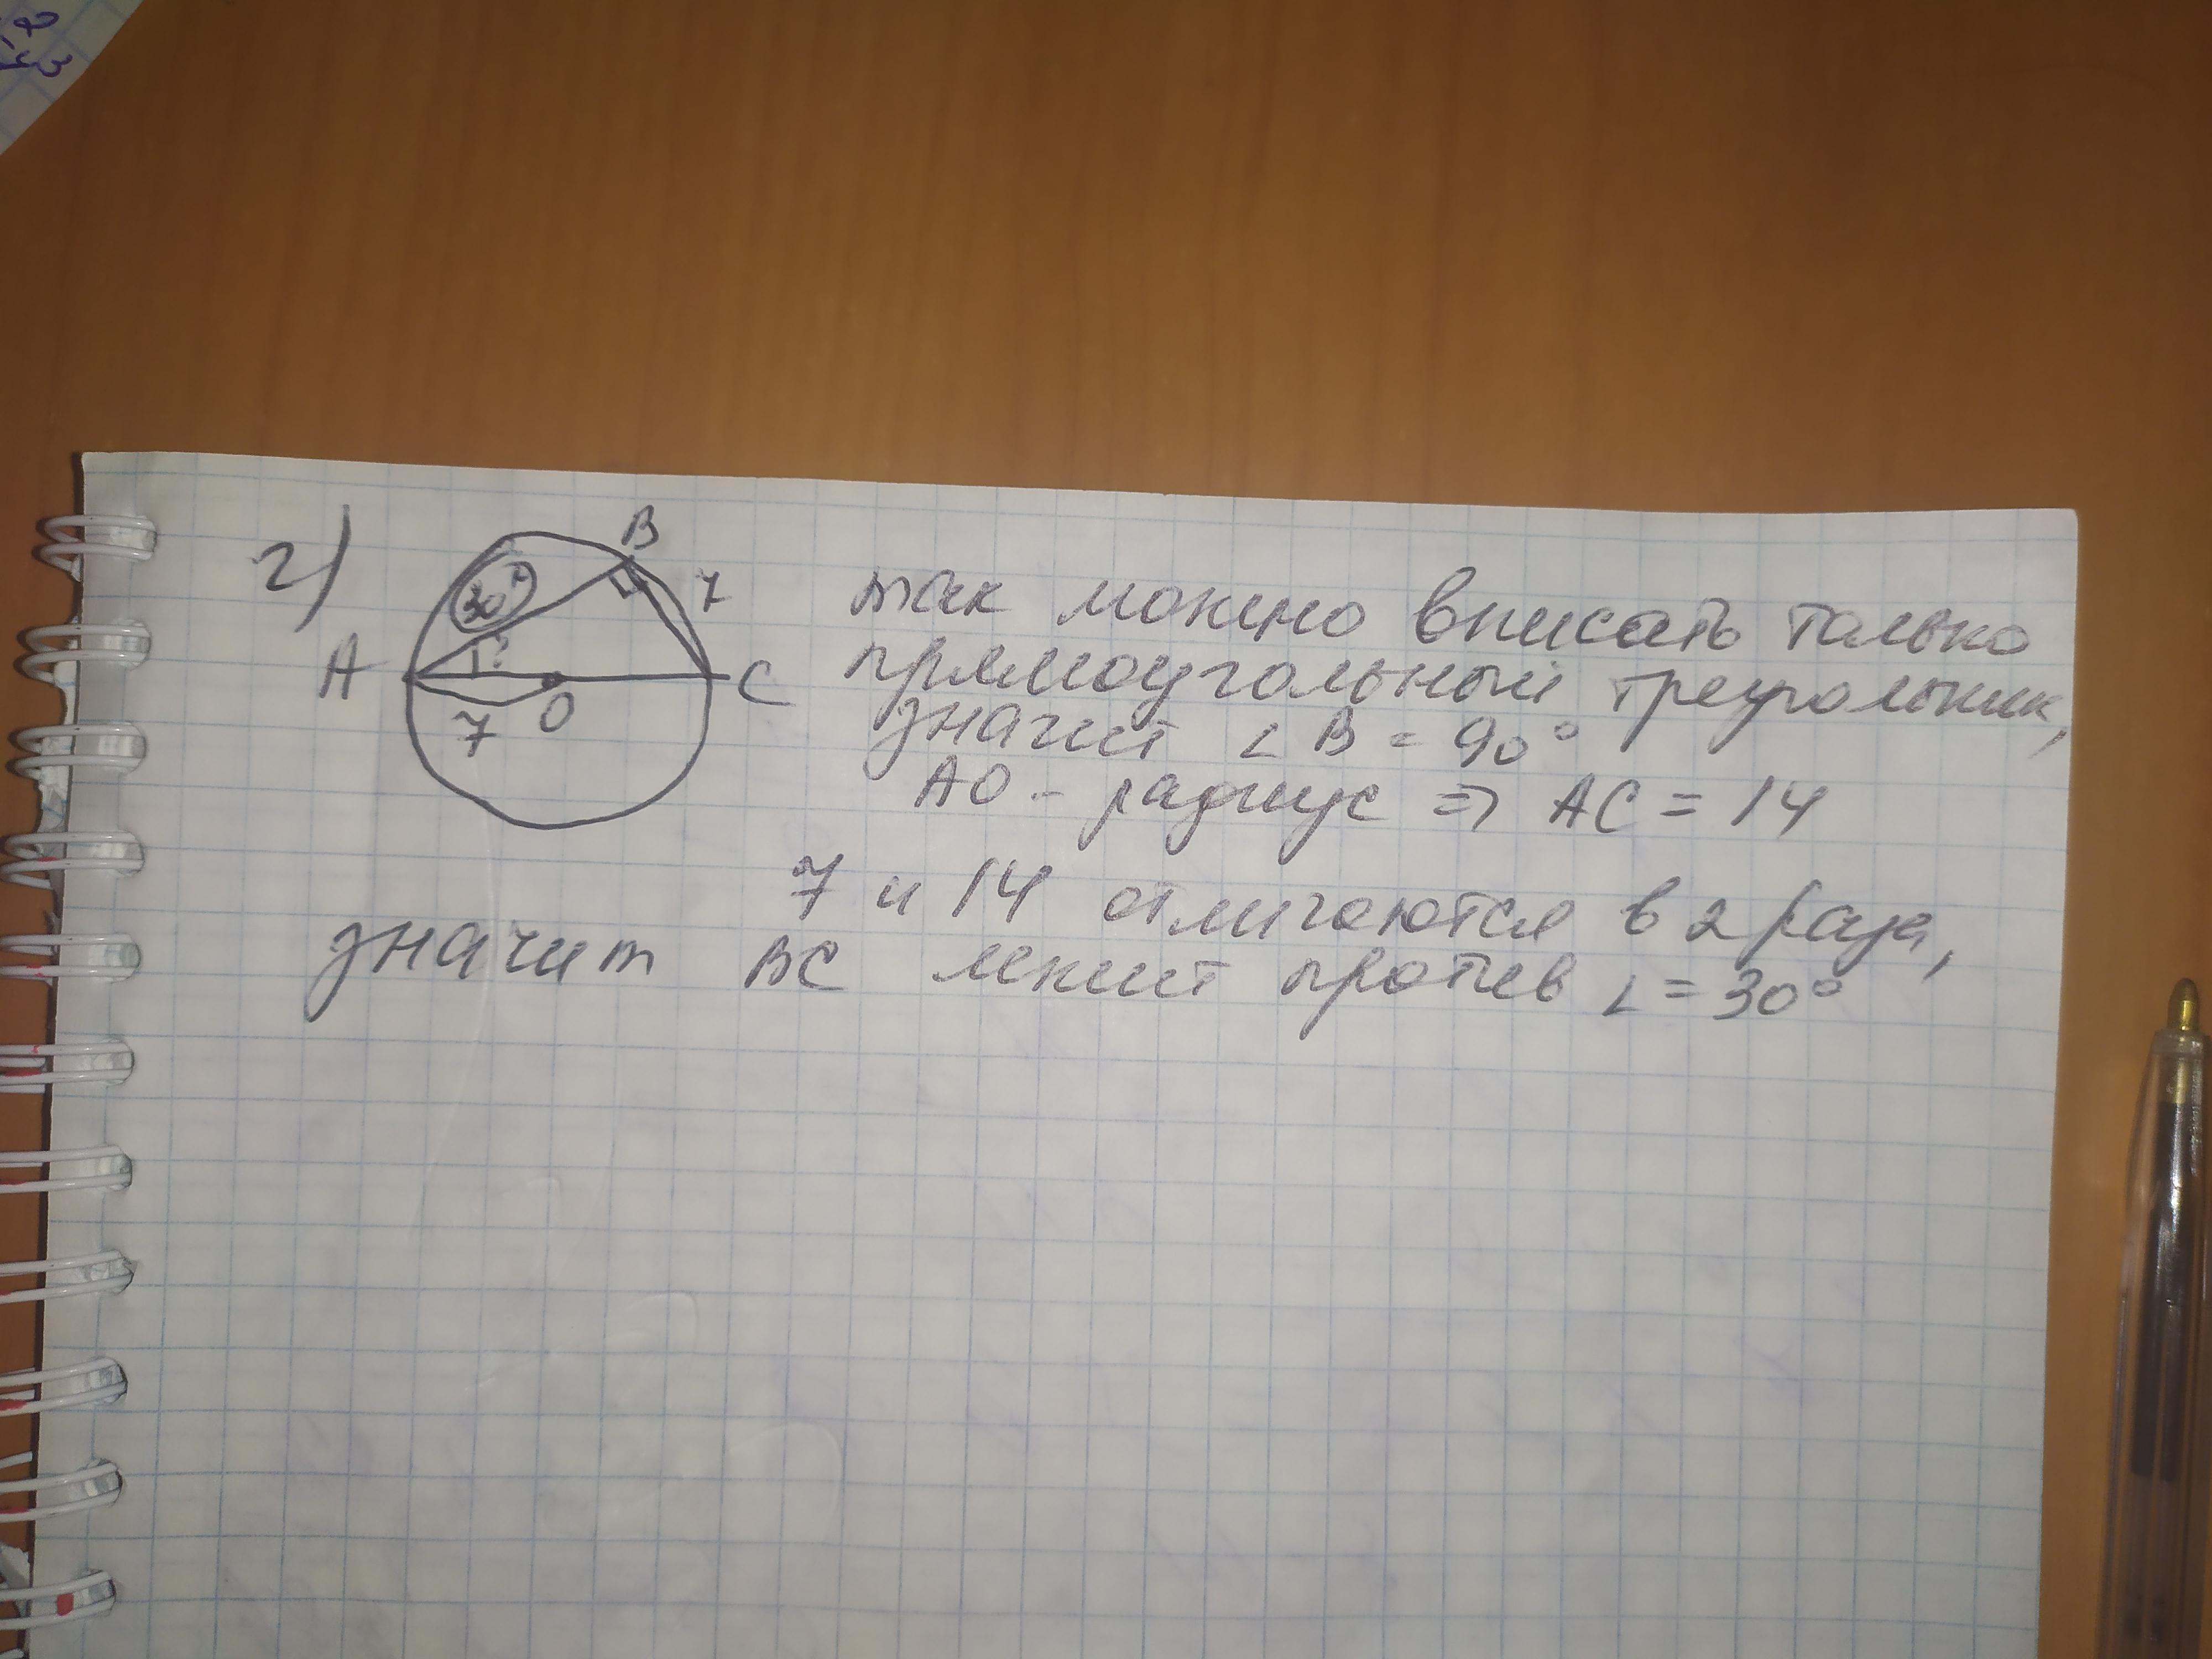 г)
B
30°
7
A
?
C
7
O
так можно вписать только
прямоугольный треугольник,
значит ∠ B = 90°
AO - радиус => AC = 14
7 и 14 отличаются в 2 раза,
значит BC лежит против ∠ = 30°